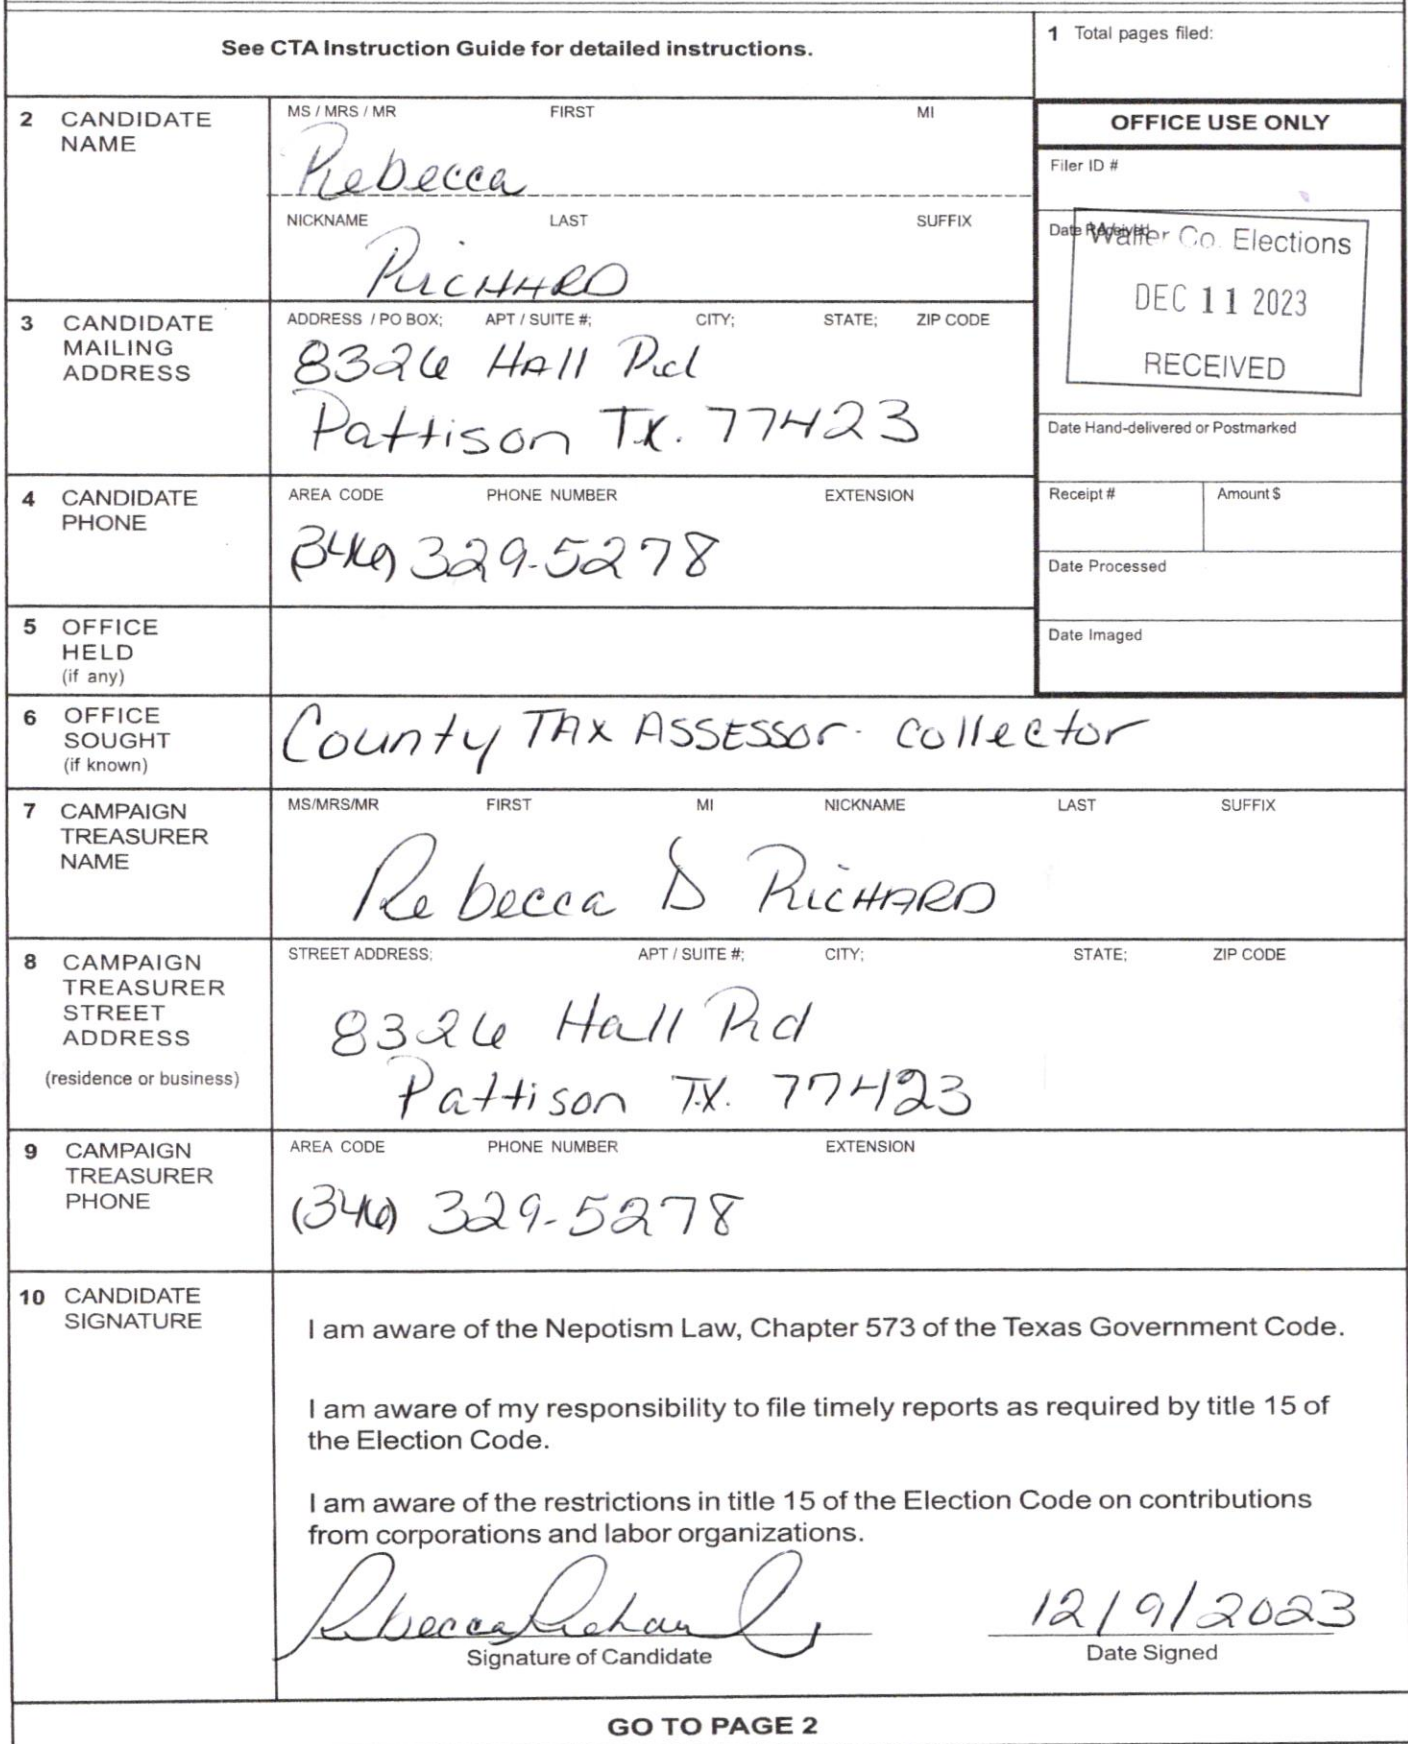 See CTA Instruction Guide for detailed instructions.
1 Total pages filed:
2 CANDIDATE NAME
MS / MRS / MR FIRST MI
Rebecca
NICKNAME LAST SUFFIX
RICHARD
OFFICE USE ONLY
Filer ID #
Date Received
Waller Co. Elections
DEC 11 2023
RECEIVED
3 CANDIDATE MAILING ADDRESS
ADDRESS / PO BOX; APT / SUITE #; CITY; STATE; ZIP CODE
8326 HAll Rd
Pattison TX. 77423
Date Hand-delivered or Postmarked
4 CANDIDATE PHONE
AREA CODE PHONE NUMBER EXTENSION
(346) 329-5278
Receipt # Amount $
Date Processed
5 OFFICE HELD
(if any)
Date Imaged
6 OFFICE SOUGHT
(if known)
County TAX ASSESSOr- collector
7 CAMPAIGN TREASURER NAME
MS/MRS/MR FIRST MI NICKNAME LAST SUFFIX
Rebecca D RiCHARD
8 CAMPAIGN TREASURER STREET ADDRESS
(residence or business)
STREET ADDRESS; APT / SUITE #; CITY; STATE; ZIP CODE
8326 Hall Rd
Pattison TX. 77423
9 CAMPAIGN TREASURER PHONE
AREA CODE PHONE NUMBER EXTENSION
(346) 329-5278
10 CANDIDATE SIGNATURE
I am aware of the Nepotism Law, Chapter 573 of the Texas Government Code.
I am aware of my responsibility to file timely reports as required by title 15 of
the Election Code.
I am aware of the restrictions in title 15 of the Election Code on contributions
from corporations and labor organizations.
Rebecca Richard 12/9/2023
Signature of Candidate Date Signed
GO TO PAGE 2